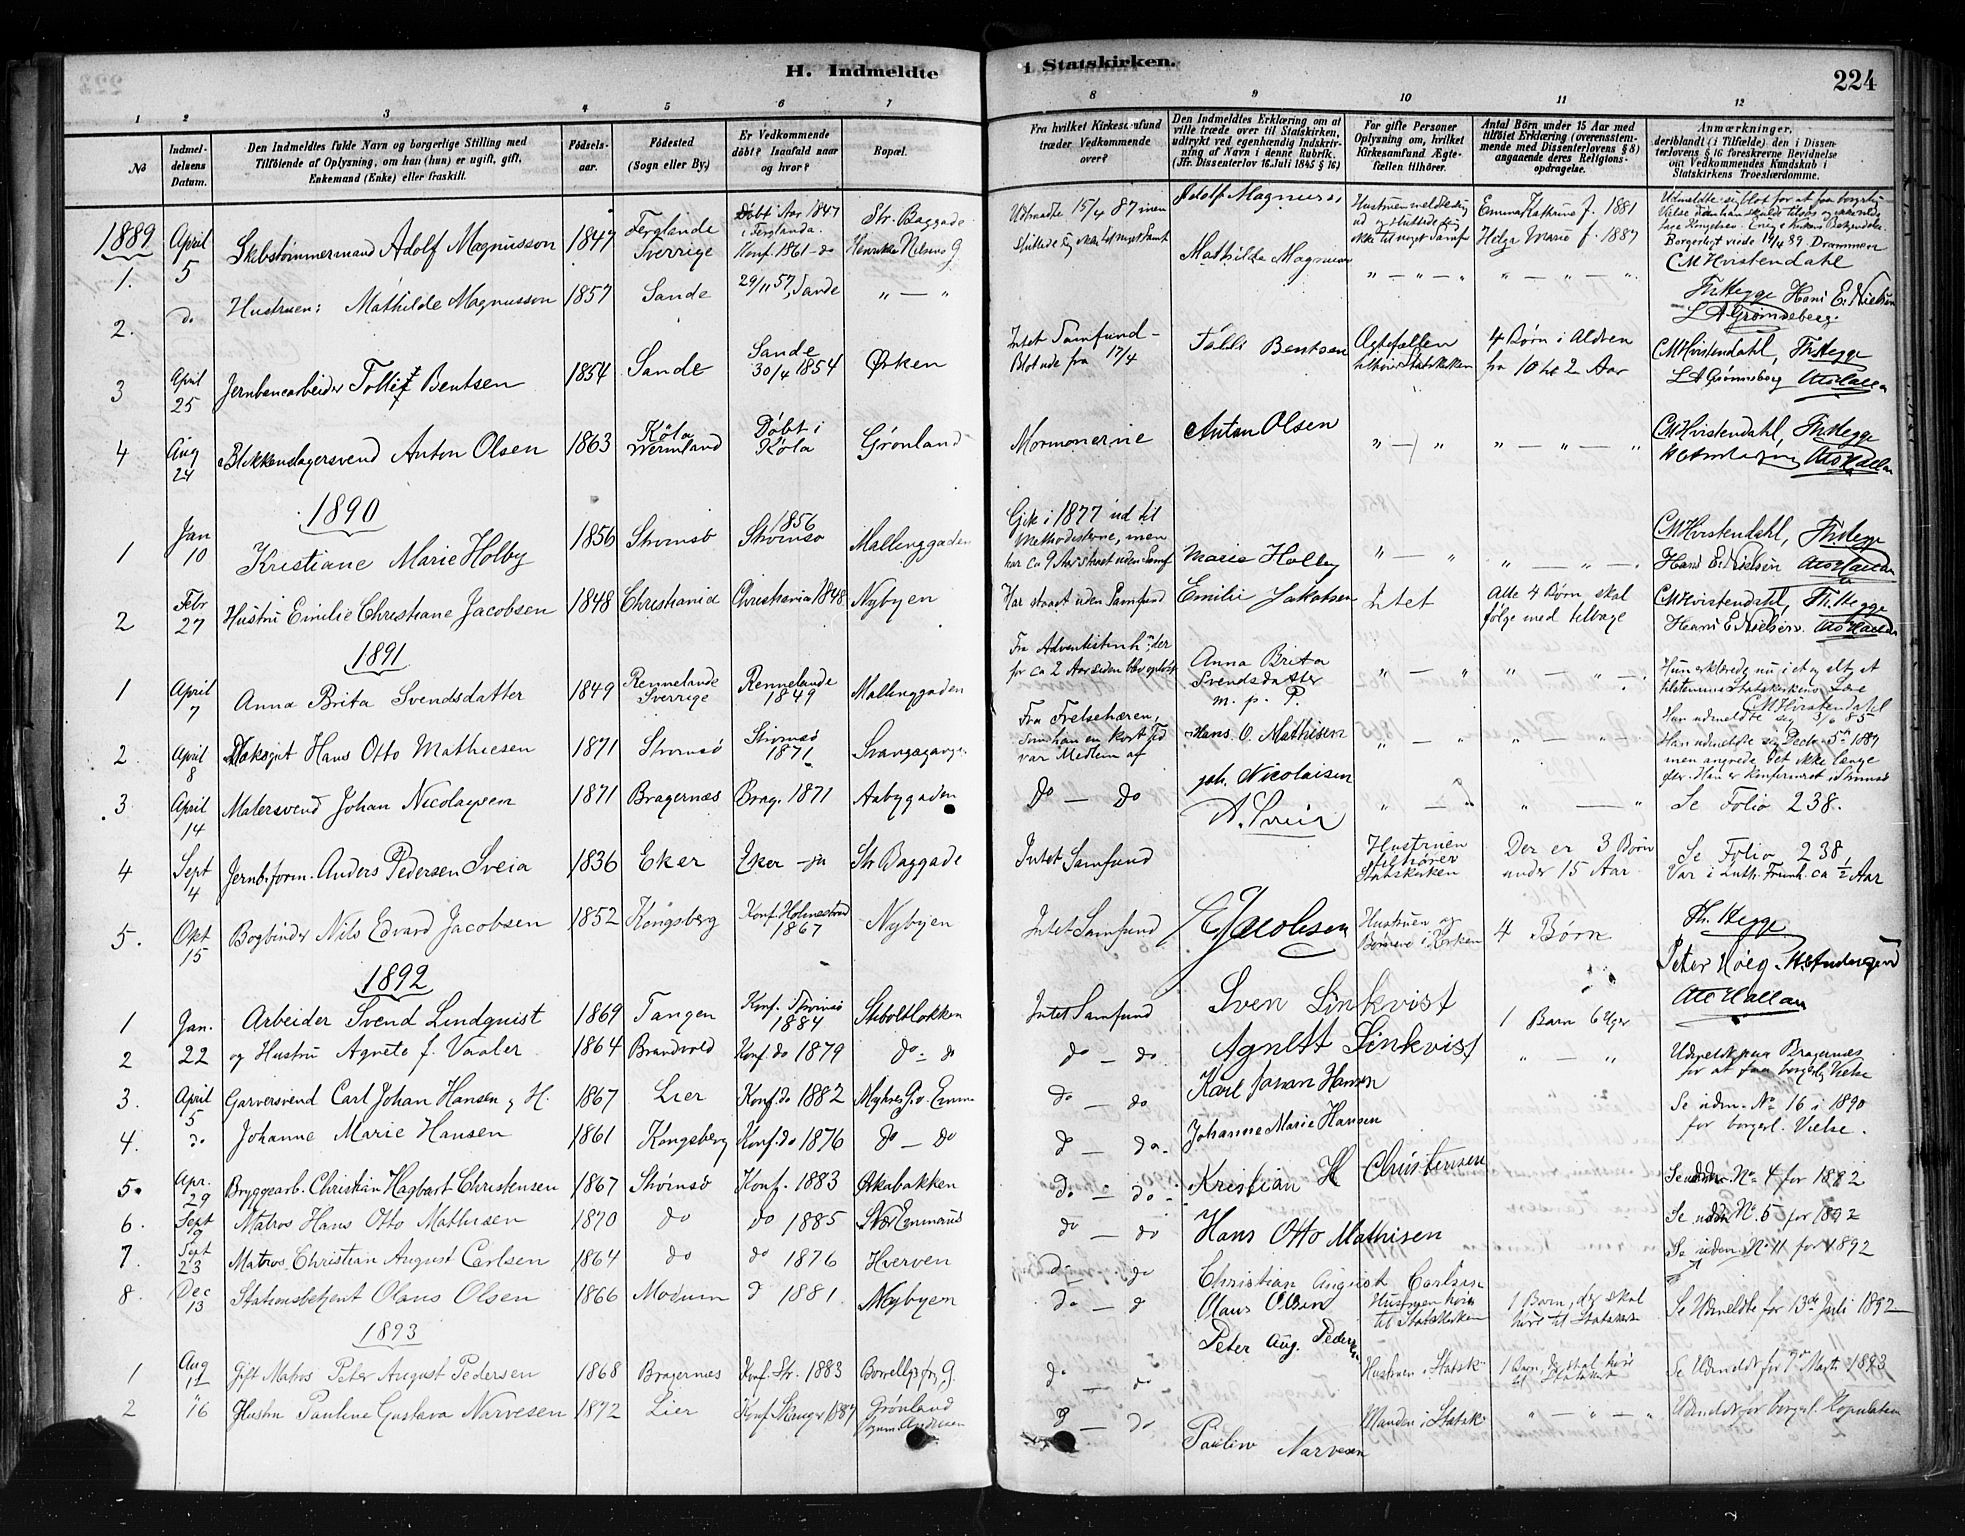 H. Indmeldte
i Statskirken.
224
1 2 3 4 5 6 7 8 9 10 11 12
No
Indmel-
delsens
Datum.
Den Indmeldtes fulde Navn og borgerlige Stilling med
Tilföiende af Oplysning, om han (hun) er ugift, gift,
Enkemand (Enke) eller fraskilt.
Födsels-
aar.
Födested
(Sogn eller By)
Er Vedkommende
döbt? Isaafald naar
og hvor?
Bopæl.
Fra hvilket Kirkesamfund
træder Vedkommende
over?
Den Indmeldtes Erklæring om at
ville træde over til Statskirken,
udtrykt ved egenhændig Indskriv-
ning af Navn i denne Rubrik.
(Jfr. Dissenterlov 16. Juli 1845 § 16)
For gifte Personer
Oplysning om, hvilket
Kirkesamfund Ægte-
fællen tilhörer.
Antal Börn under 15 Aar med
tilföiet Erklæring (overensstem-
mende med Dissenterlovens § 8)
angaaende deres Religions-
opdragelse.
Anmærkninger,
deriblandt (i Tilfælde) den i Dissen-
terlovens § 16 foreskrevne Bevidnelse
om Vedkommendes Kundskab i
Statskirkens Troeslærdomme.
1889
1. April 5 Skibstömmermand Adolf Magnusson 1847 Ferglanda Sverrige Döbt Aar 1847 i Ferglanda. Konf. 1861 - do Str. Baggade Udtraadte 15/4 87 men Adolf Magnuss Emma Katrine f. 1881 Helga Marie f. 1887 Borgerligt viede Drammen CM Hvistendahl
2. do Hustruen: Mathilde Magnusson 1857 Sande 29/11 57, Sande " — " Mathilde Magnuss " — " — " " — " — " Th. Hegge Hans E. Nielsen L A Grønneberg.
3 April 25 Jernbanearbeider Tollef Bentsen 1854 Sande Sande 30/4 1854 Ørken Intet Samfund - Blot ude fra 17/4 Tolli Bentsen Ægtefællen tilhörer Statskirken 4 Børn i Alderen fra 10 til 2 Aar CM Hvistendahl, Th. Hegge L A Grønneberg Otto Hallen
4 Aug 24 Blikkenslagersvend Anton Olsen 1863 Köla Wermland Döbt i Köla Grønland Mormonerne Anton Olsen " — " " — " — " CM Hvistendahl, Th. Hegge Otto Hallen
1890
1 Jan 10 Kristiane Marie Holby 1856 Strömsö 1856 Strömsö Mallinggaden Gik i 1877 ud til Methodisterne, men har ca 9 Aar staaet uden Samf Marie Holby " — " " — " — " CM Hvistendahl, Th. Hegge Hans E. Nielsen Otto Hallen
2 Febr 27 Hustru Emilie Christiane Jacobsen 1848 Christiania Christiania 1848 Nybyen Har staaet uden Samfund Emilie Jakobsen Intet Alle 4 Børn skal følge med tilbage CM Hvistendahl, Th. Hegge Hans E. Nielsen. Otto Hallen
1891
1 April 7 Anna Brita Svendsdatter 1849 Rennelanda Sverrige Rennelanda 1849 Mallinggaden Fra Adventisterne, der for ca 2 Aar siden blev opløst Anna Brita Svendsdatter m. p. P. " — " " — " CM Hvistendahl
2. April 8 Hans Otto Mathiesen 1871 Strömsö Strömsö 1871 Svangagangen Fra Frelsehæren, som han en kort Tid var Medlem af Hans. O. Mathisen " — " " — " men angrede det ikke længe
3 April 14 Malersvend Johan Nicolaysen 1871 Bragernæs Brag. 1871 Aabygaden Do — Do joh. Nicolaisen " — " " — " Se Folio 238.
4 Sept 4 Jernb.form. Anders Pedersen Sveia 1836 Eker Eker — ja Str Baggade Intet Samfund A. Sveia Hustruen tilhører Statskirken Der er 3 Børn under 15 Aar. Se Folio 238 Var i Luth. Frimh. ca 1/2 Aar
5. Okt 15 Bogbinder Nils Edvard Jacobsen 1852 Kongsberg Konf. Holmestrand 1867 Nybyen Intet Samfund E Jacobsen Hustruen og Børnene i Kirken 4 Børn Th. Hegge
Peter Høeg
1892
1 Jan. Arbeider Svend Lindquist 1869 Tangen Konf. Strømsø 1884 Skiboldtokken Intet Samfund Sven Linkvist 1 Barn 6 Uger Otto Hallan
2 22 og Hustru Agnete f. Vaaler 1864 Brandvold Konf. do 1879 do - do do — do Agnett Linkvist " — " Udmeldt paa Bragernæs for at faa borgerlig Vielse
3. April 5 Garversvend Carl Johan Hansen og H. 1867 Lier Konf. do 1882 do — do Karl Johan Hansen Se udm. No 16 i 1890
4. do Johanne Marie Hansen 1861 Kongsberg Konf. do 1876 do — do do — do. Johanne Marie Hansen for borgerl. Vielse.
5. Apr. 29 Bryggearb. Christian Hagbart Christensen 1867 Strømsö Konf. 1883 Ørkabakken do — do - Kristian H Christensen Se No 4 for 1882
6. Sept 9 Matros Hans Otto Mathisen 1870 do do 1885 do — do Hans Otto Mathisen Se No 5 for 1892
7. Sept 23 Matros. Christian August Carlsen 1864 do do 1876 Hverven do — do Christian August Carlsen Se uden. No 11 for 1892
8. Dec 13 Stationsbetjent Olaus Olsen 1866 Modum do 1881. Nybyen do — do Olaus Olsen Hustruen hører til Statskirken 1 Barn, der skal høre til Statskirk Se Udmeldte for 13de Juli 1892
1893
1 Aug 12 Gift Matros Peter August Pedersen 1868 Bragernæs Konf. Str. 1883 do — do Peter Aug. Pedersen Hustruen i Statsk. 1 Barn der skal høre til Statskirk Se Udmeldt for 7de Marts 1893
2 " 16 Hustru Pauline Gustava Narvesen 1872 Lier Konf. Skoger 1887 Grønland do — do Pauline Narvesen Manden i Statsk " — " — " Udmeldt for borgerl. Kopulation